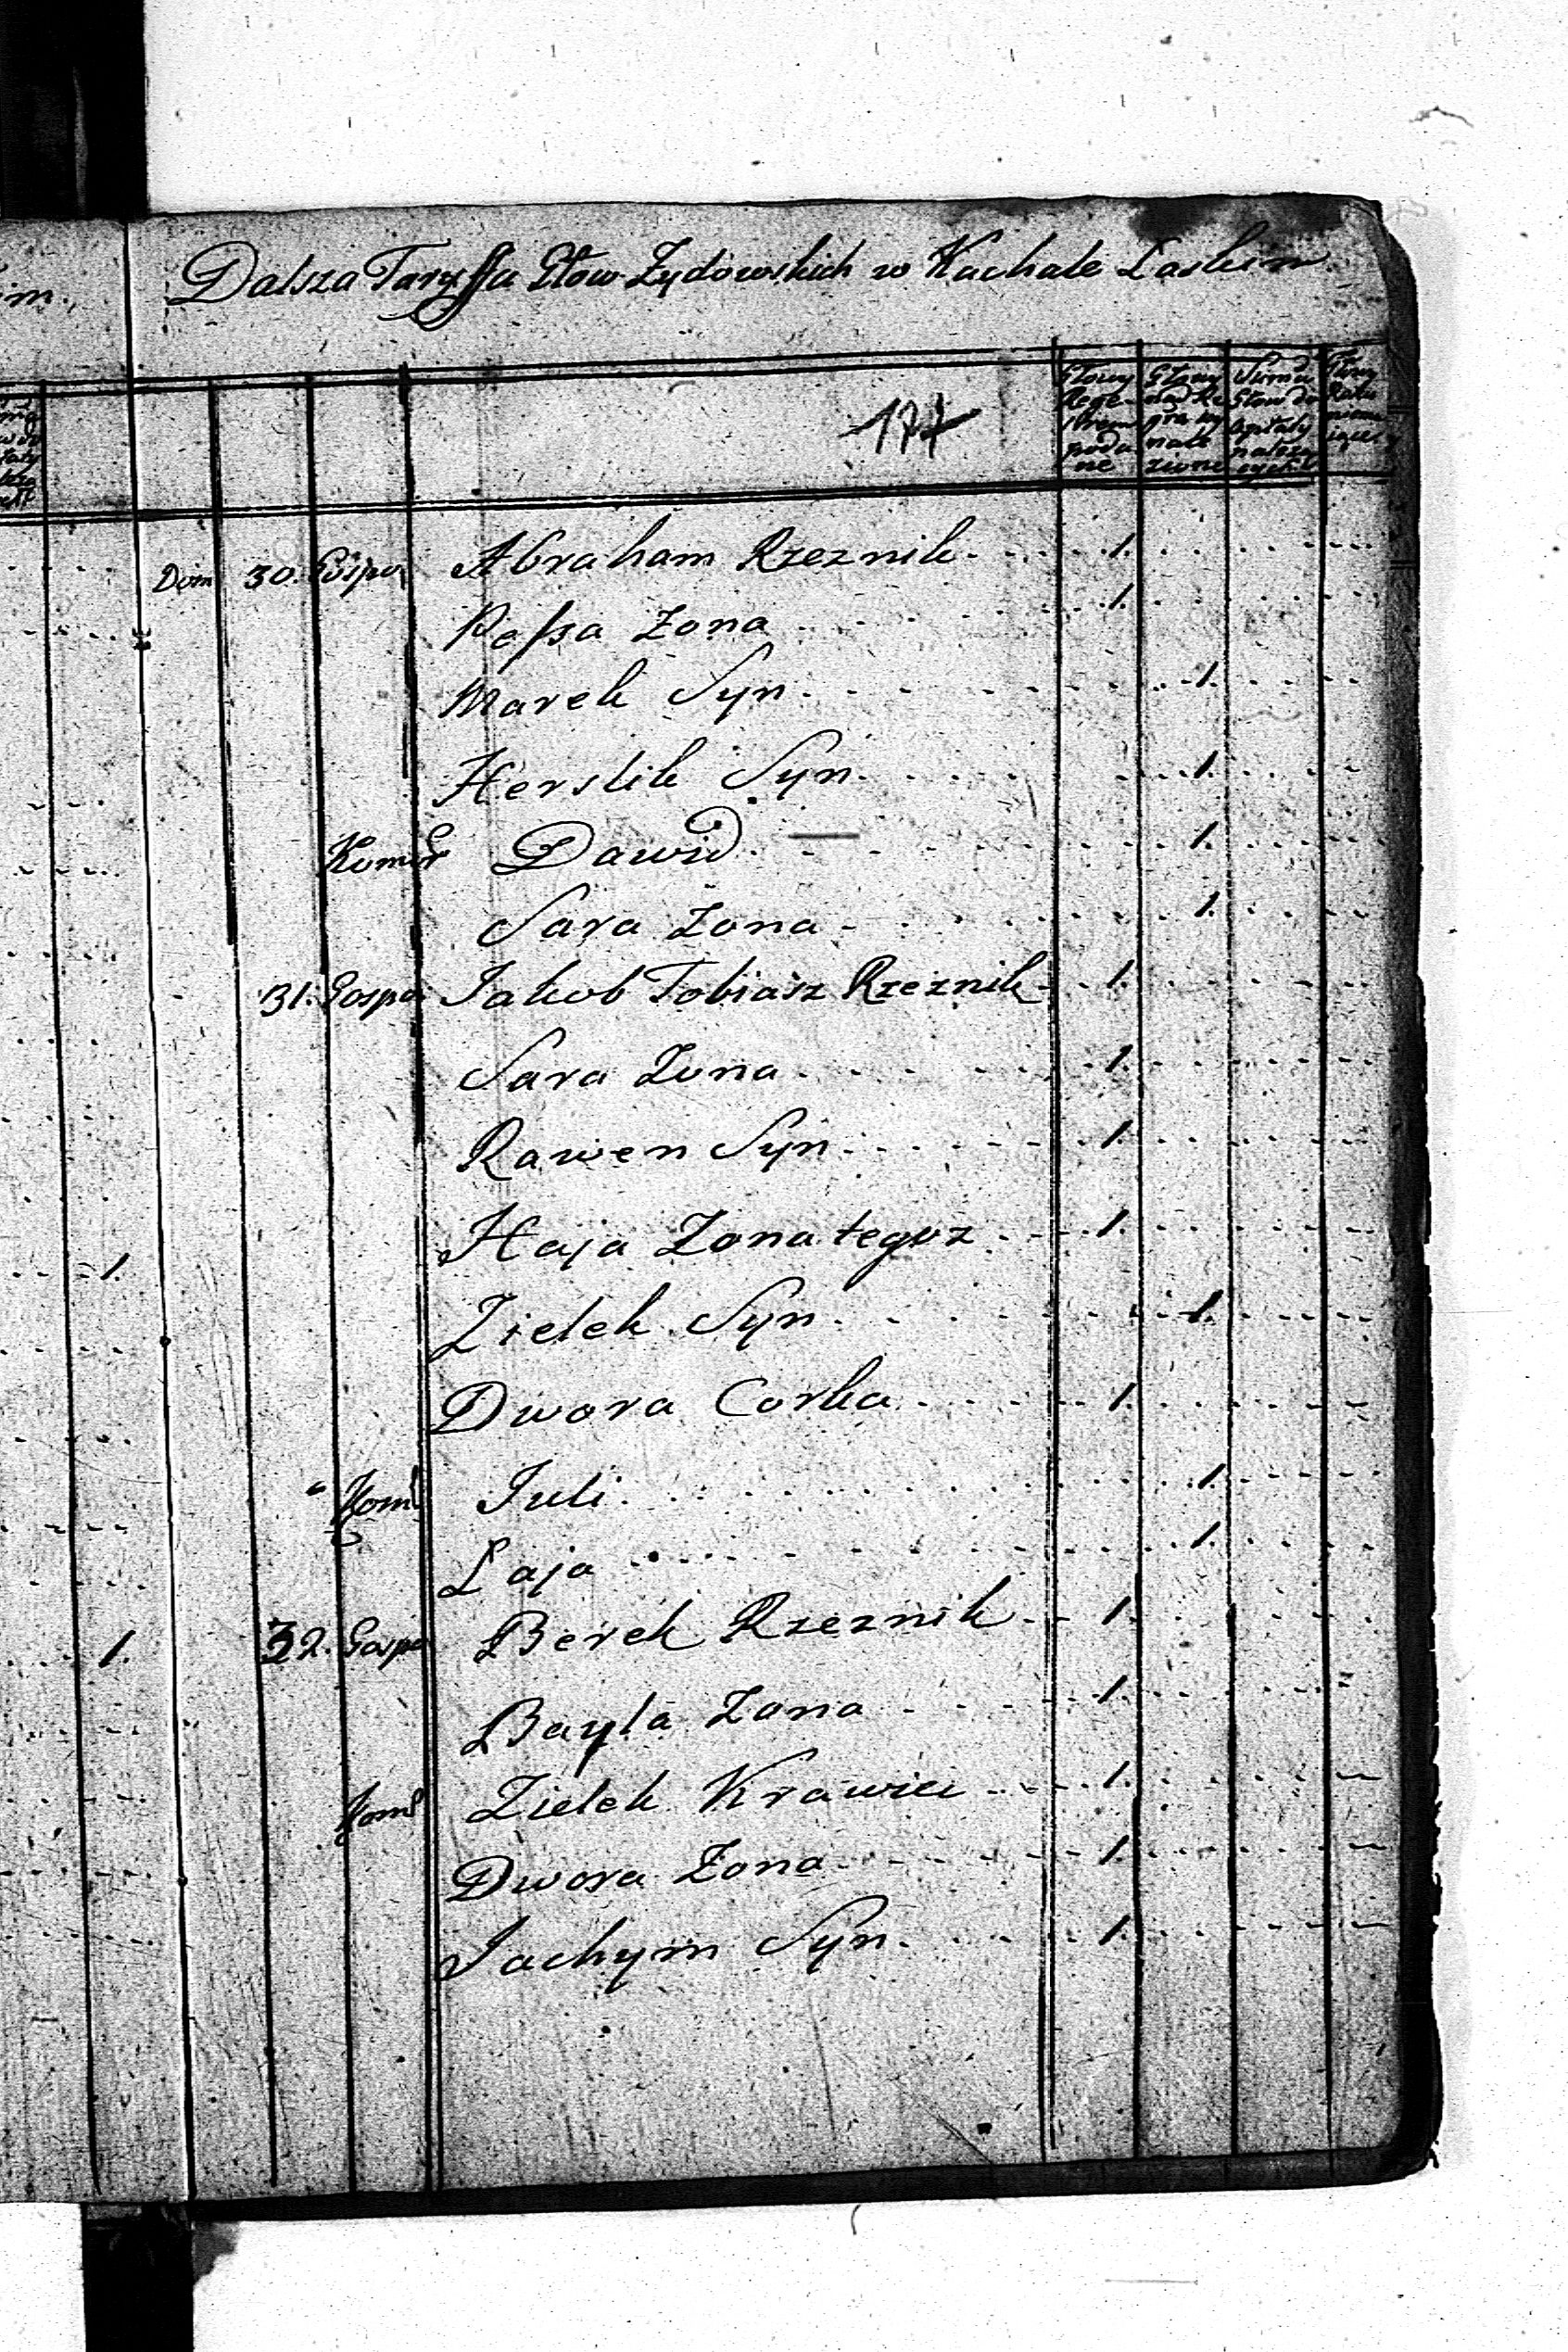 Dalsza Taryffa Głow Zydowskich w Kachale Laskim
177
Głowy Rege strem poda ne
Głowy nad Re gra wy nale zione
Summa Głow do Opłaty należą cych
Dom 30. Gospo Abraham Rzeznik 1.
Pessa Zona 1.
Marek Syn 1.
Herslik Syn 1.
Komor Dawid — 1.
Sara Zona 1.
31. Gospo Jakob Tobiasz Rzeznik 1.
Sara Zona 1.
Rawen Syn 1.
Haja Zona tegoz 1.
Zielek Syn 1.
Dwora Corka 1.
Kom Juli 1.
Laja 1.
32. Gospo Berek Rzeznik 1.
Bayla Zona 1.
Kom Zielek Krawiec 1.
Dwora Zona 1.
Jachym Syn 1.